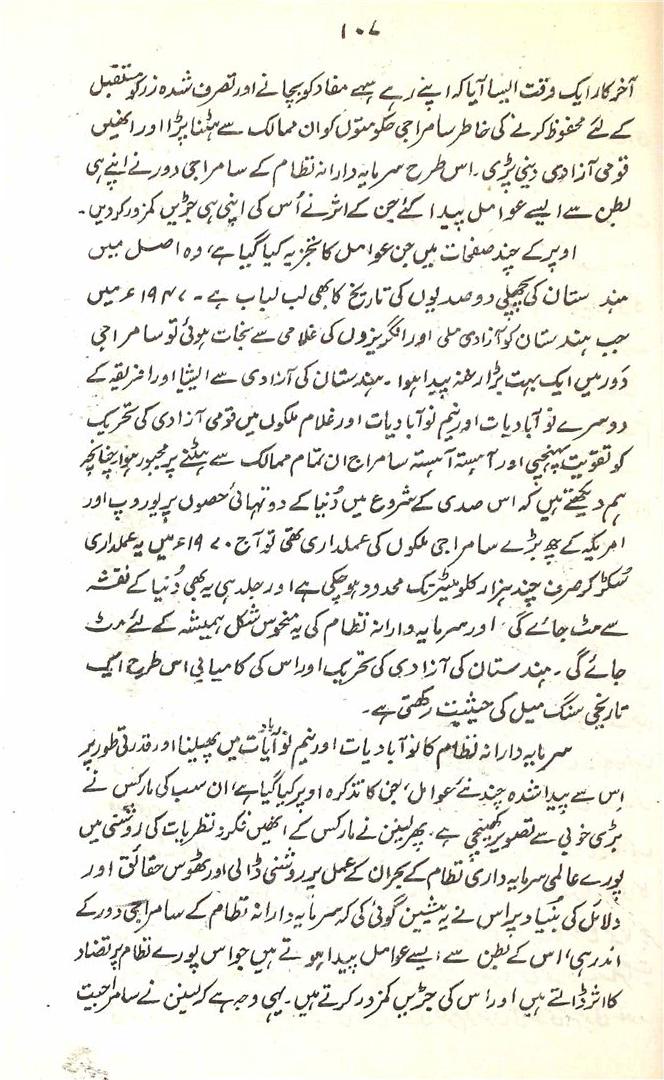 ۱۰۷
آخر کار ایک وقت ایسا آیا کہ اپنے رہے سہے مفاد کو بچانے اور تصرف شدہ زر کو مستقبل
کے لئے محفوظ کرنے کی خاطر سامراجی حکومتوں کو ان ممالک سے ہٹنا پڑا اور انھیں
قومی آزادی دینی پڑی۔ اس طرح سرمایہ دارانہ نظام کے سامراجی دور نے اپنے ہی
بطن سے ایسے عوامل پیدا کئے جن کے اثر نے اُس کی اپنی ہی جڑیں کمزور کر دیں۔
اوپر کے چند صفحات میں جن عوامل کا تجزیہ کیا گیا ہے، وہ اصل میں
ہندستان کی پچھلی دو صدیوں کی تاریخ کا بھی لب لباب ہے۔ ۱۹۴۷ء میں
جب ہندستان کو آزادی ملی اور انگریزوں کی غلامی سے نجات ہوئی تو سامراجی
دَور میں ایک بہت بڑا رخنہ پیدا ہوا۔ ہندستان کی آزادی سے ایشیا اور افریقہ کے
دوسرے نو آبادیات اور نیم نو آبادیات اور غلام ملکوں میں قومی آزادی کی تحریک
کو تقویت پہنچی اور آہستہ آہستہ سامراج ان تمام ممالک سے ہٹنے پر مجبور ہوا، چنانچہ
ہم دیکھتے ہیں کہ اس صدی کے شروع میں دُنیا کے دو تہائی حصوں پر یوروپ اور
امریکہ کے چھ بڑے سامراجی ملکوں کی عملداری تھی تو آج ۱۹۷۰ء میں یہ عملداری
سُکڑ کر صرف چند ہزار کلو میٹر تک محدود ہو چکی ہے اور جلد ہی یہ بھی دُنیا کے نقشہ
سے مٹ جائے گی اور سرمایہ دارانہ نظام کی یہ منحوس شکل ہمیشہ کے لئے مٹ
جائے گی۔ ہندستان کی آزادی کی تحریک اور اس کی کامیابی اس طرح ایک
تاریخی سنگ میل کی حیثیت رکھتی ہے۔
سرمایہ دارانہ نظام کا نو آبادیات اور نیم نو آبادیات میں پھیلنا اور قدرتی طور پر
اِس سے پیدا شدہ چند نئے عوامل، جن کا تذکرہ اوپر کیا گیا ہے، ان سب کی مارکس نے
بڑی خوبی سے تصویر کھینچی ہے۔ پھر لینن نے مارکس کے انھیں فکر و نظریات کی روشنی میں
پورے عالمی سرمایہ داری نظام کے بحران کے عمل پر روشنی ڈالی اور ٹھوس حقائق اور
دلائل کی بُنیاد پر اس نے یہ پیشین گوئی کی کہ سرمایہ دارانہ نظام کے سامراجی دور کے
اندر ہی، اس کے بطن سے ایسے عوامل پیدا ہوتے ہیں جو اس پورے نظام پر تضاد
کا اثر ڈالتے ہیں اور اس کی جڑیں کمزور کرتے ہیں۔ یہی وجہ ہے کہ لینن نے سامراجیت